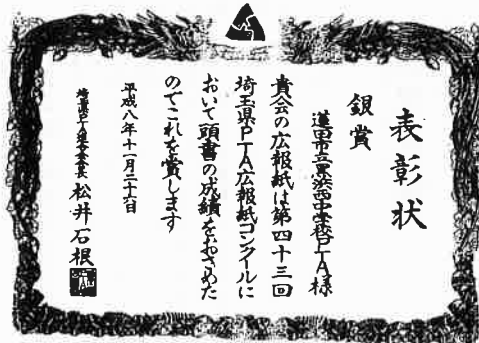 表彰状
銀賞
蓮田市立黒浜西中学校PTA様
貴会の広報紙は第四十三回
埼玉県PTA広報紙コンクールに
おいて頭書の成績をおさめた
のでこれを賞します
平成八年十一月二十六日
埼玉県PTA連合会会長 松井石根